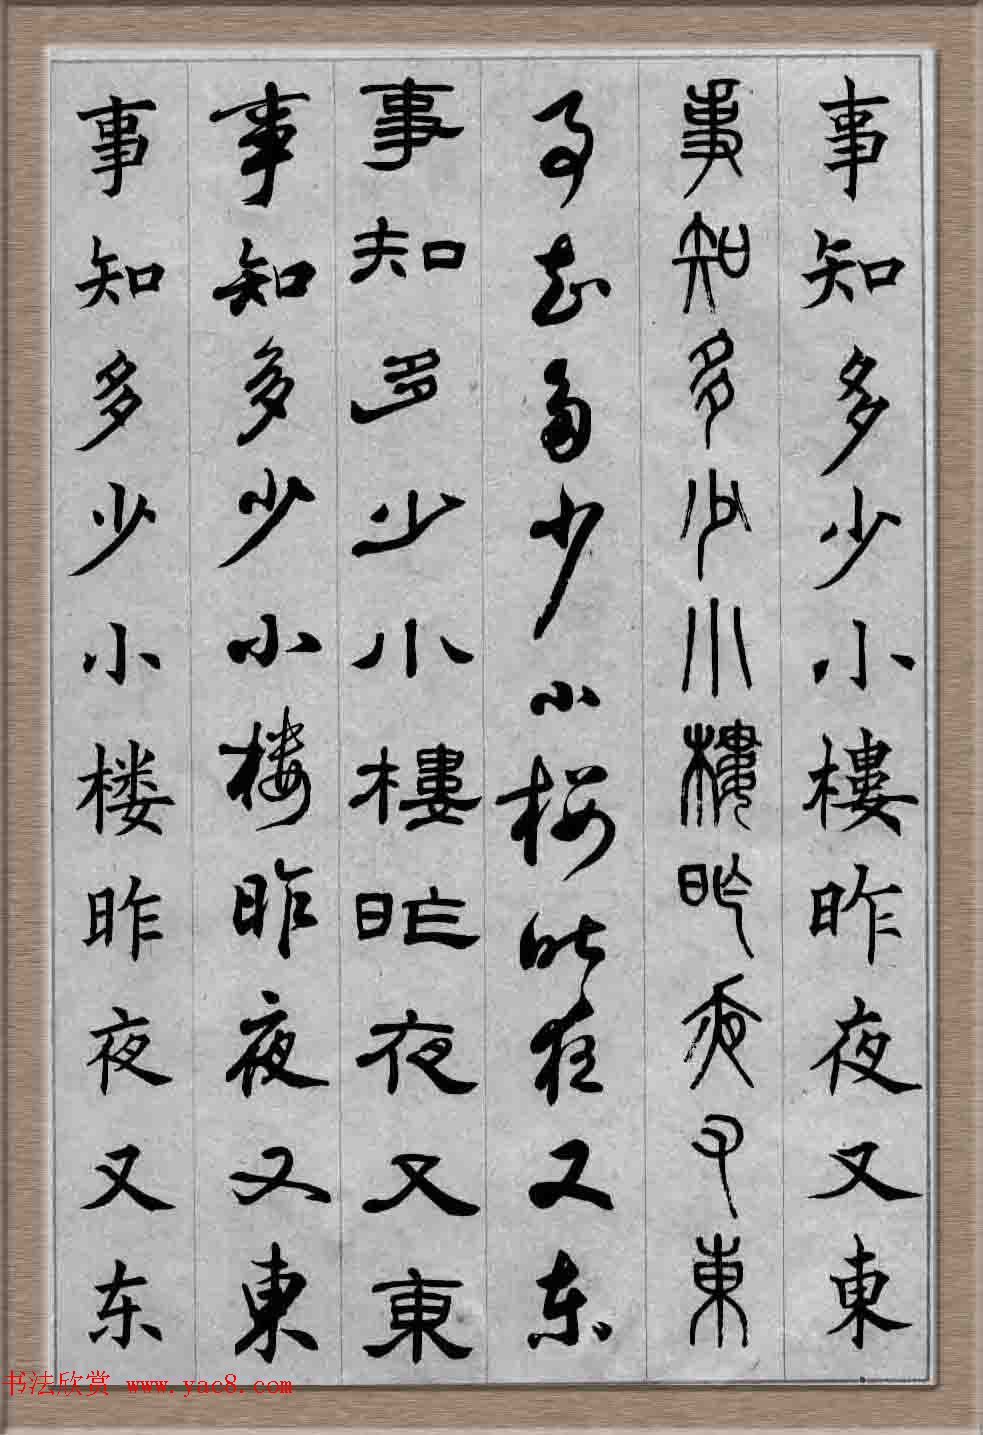 事知多少小樓昨夜又東
事知多少小樓昨夜又東
事知多少小楼昨夜又东
事知多少小樓昨夜又東
事知多少小楼昨夜又東
事知多少小楼昨夜又东
书法欣赏 www.yac8.com